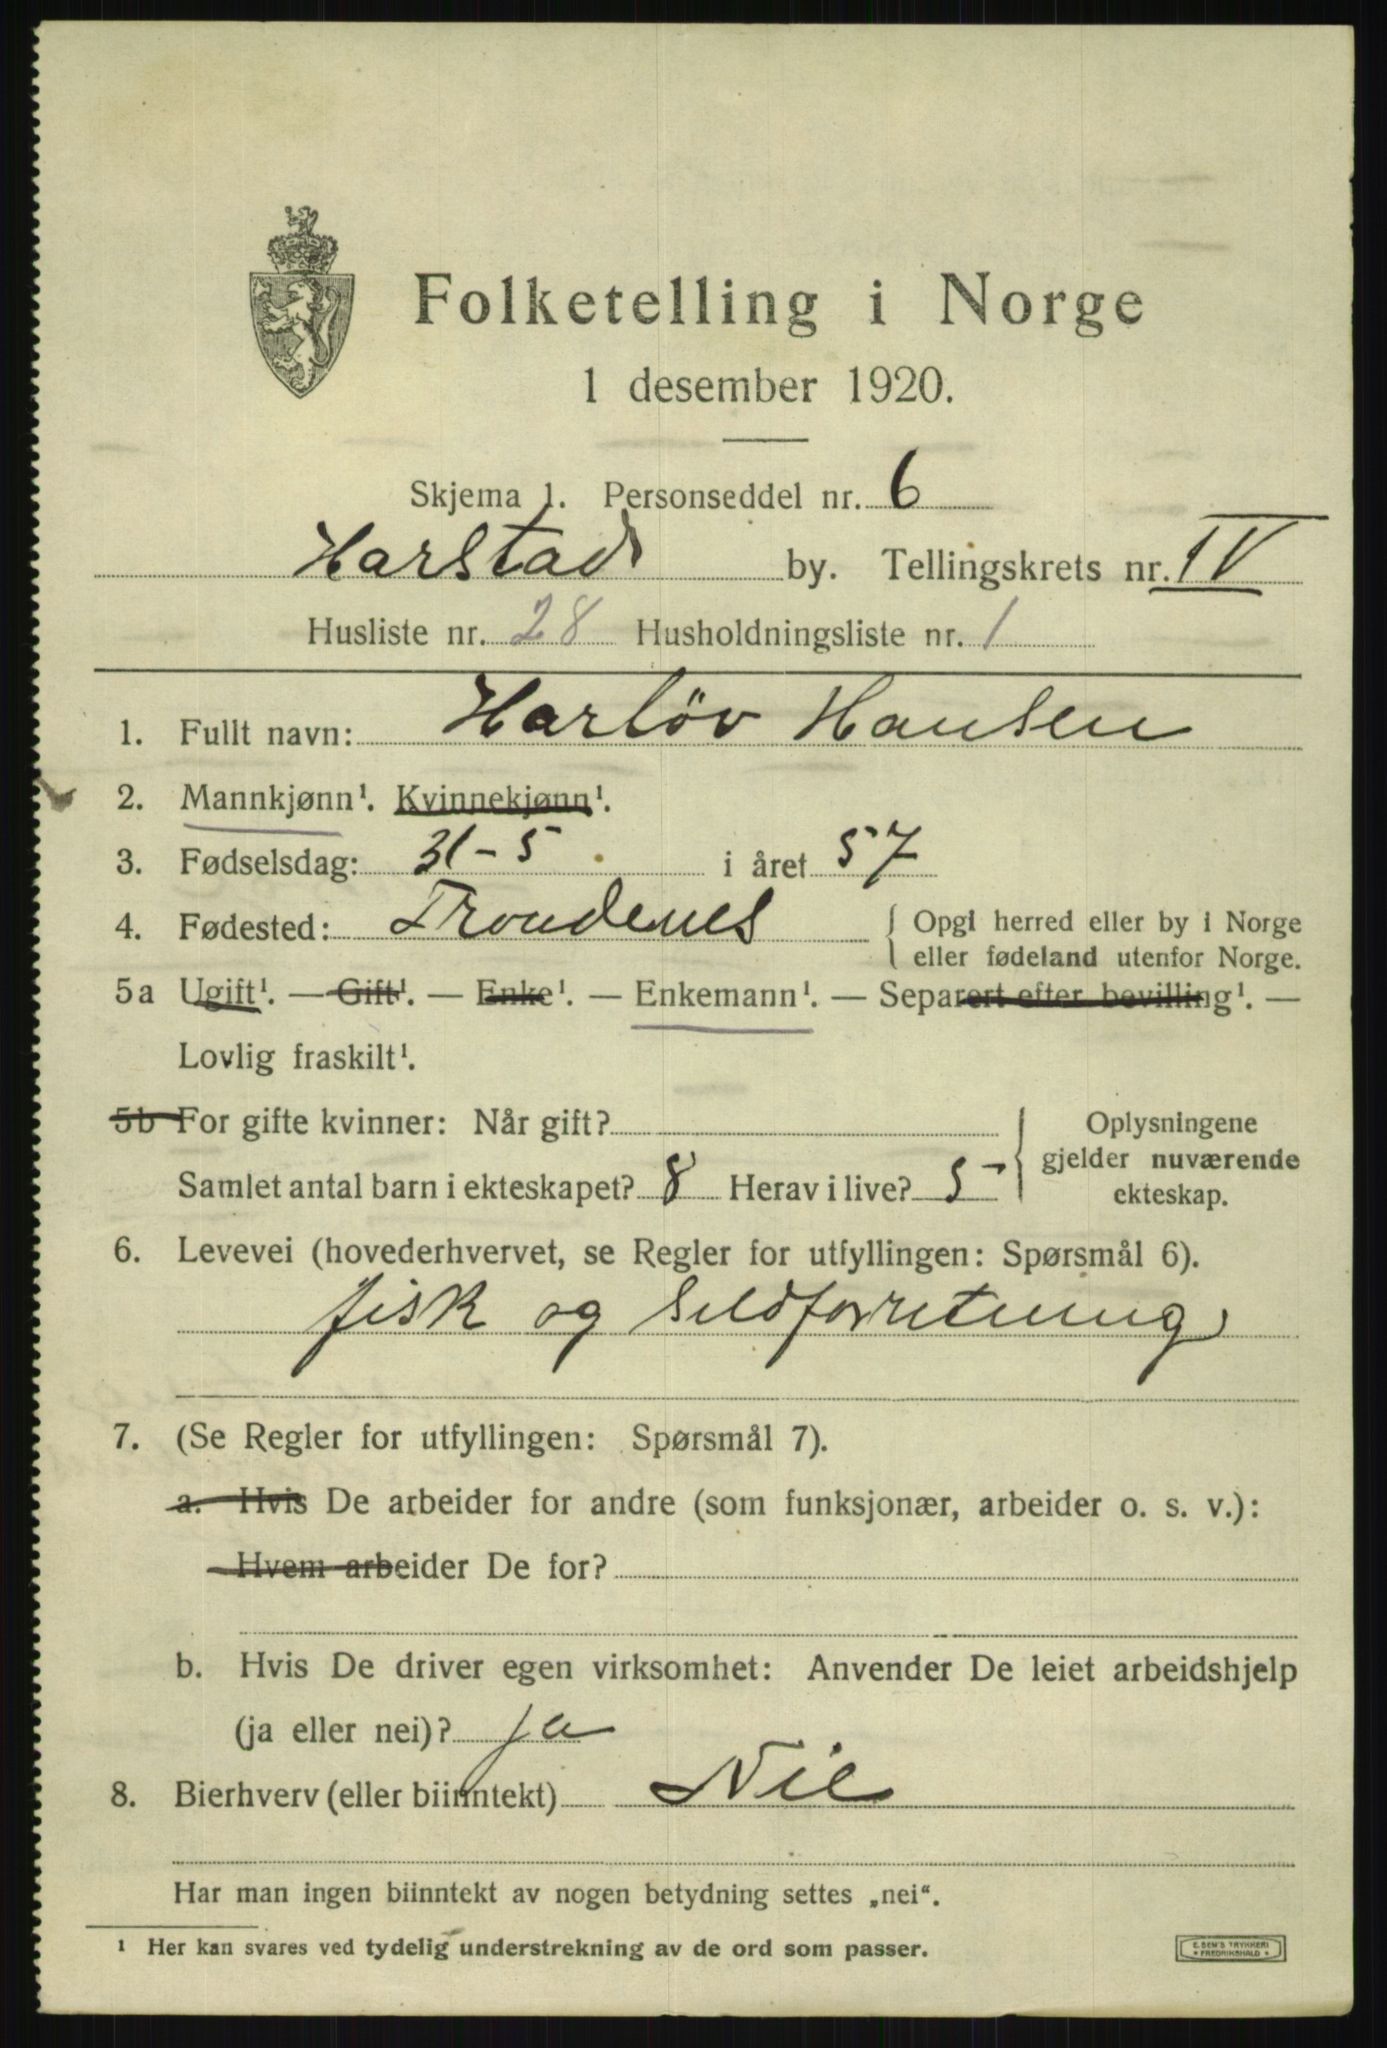 Folketelling i Norge
1 desember 1920.
Skjema 1. Personseddel nr. 6
Harstad by. Tellingskrets nr. IV
Husliste nr. 28 Husholdningsliste nr. 1
1. Fullt navn: Harløv Hansen
2. Mannkjønn¹. Kvinnekjønn¹.
3. Fødselsdag: 31-5 i året 57
4. Fødested: Trondenes { Opgi herred eller by i Norge
eller fødeland utenfor Norge.
5a Ugift¹. — Gift¹. — Enke¹. — Enkemann¹. — Separert efter bevilling¹. —
Lovlig fraskilt¹.
5b For gifte kvinner: Når gift?
Samlet antal barn i ekteskapet? 8 Herav i live? 5
Oplysningene
gjelder nuværende
ekteskap.
6. Levevei (hovederhvervet, se Regler for utfyllingen: Spørsmål 6).
fisk og sildforretning
7. (Se Regler for utfyllingen: Spørsmål 7).
a. Hvis De arbeider for andre (som funksjonær, arbeider o. s. v.):
Hvem arbeider De for?
b. Hvis De driver egen virksomhet: Anvender De leiet arbeidshjelp
(ja eller nei)? ja
8. Bierhverv (eller biinntekt) Nie
Har man ingen biinntekt av nogen betydning settes „nei“.
¹ Her kan svares ved tydelig understrekning av de ord som passer.
E. SEM'S TRYKKERI
* FREDRIKSHALD *